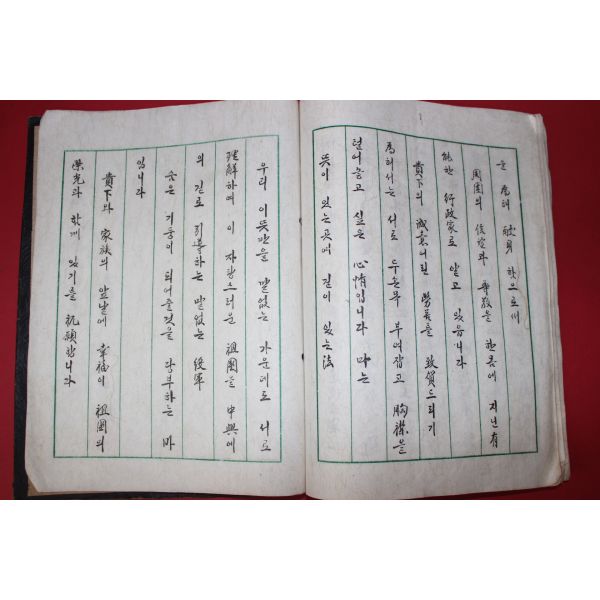 을 爲해 獻身 하므로써
周圍의 信望과 尊敬을 한몸에 지닌 有
能한 行政家로 알고 있읍니다
貴下의 誠意어린 勞苦를 致賀드리기
爲해서는 서로 두손목 부여잡고 胸襟을
털어놓고 싶은 心情입니다 마는
뜻이 있는곳에 길이 있는法
우리 이뜻만을 말없는 가운데로 서로
理解하며 이 자랑스러운 祖國을 中興에
의 길로 引導하는 말없는 役軍
숨은 기둥이 되어줄것을 당부하는 바
입니다
貴下와 家族의 앞날에 幸福이 祖國의
榮光과 함께 있기를 祈願합니다